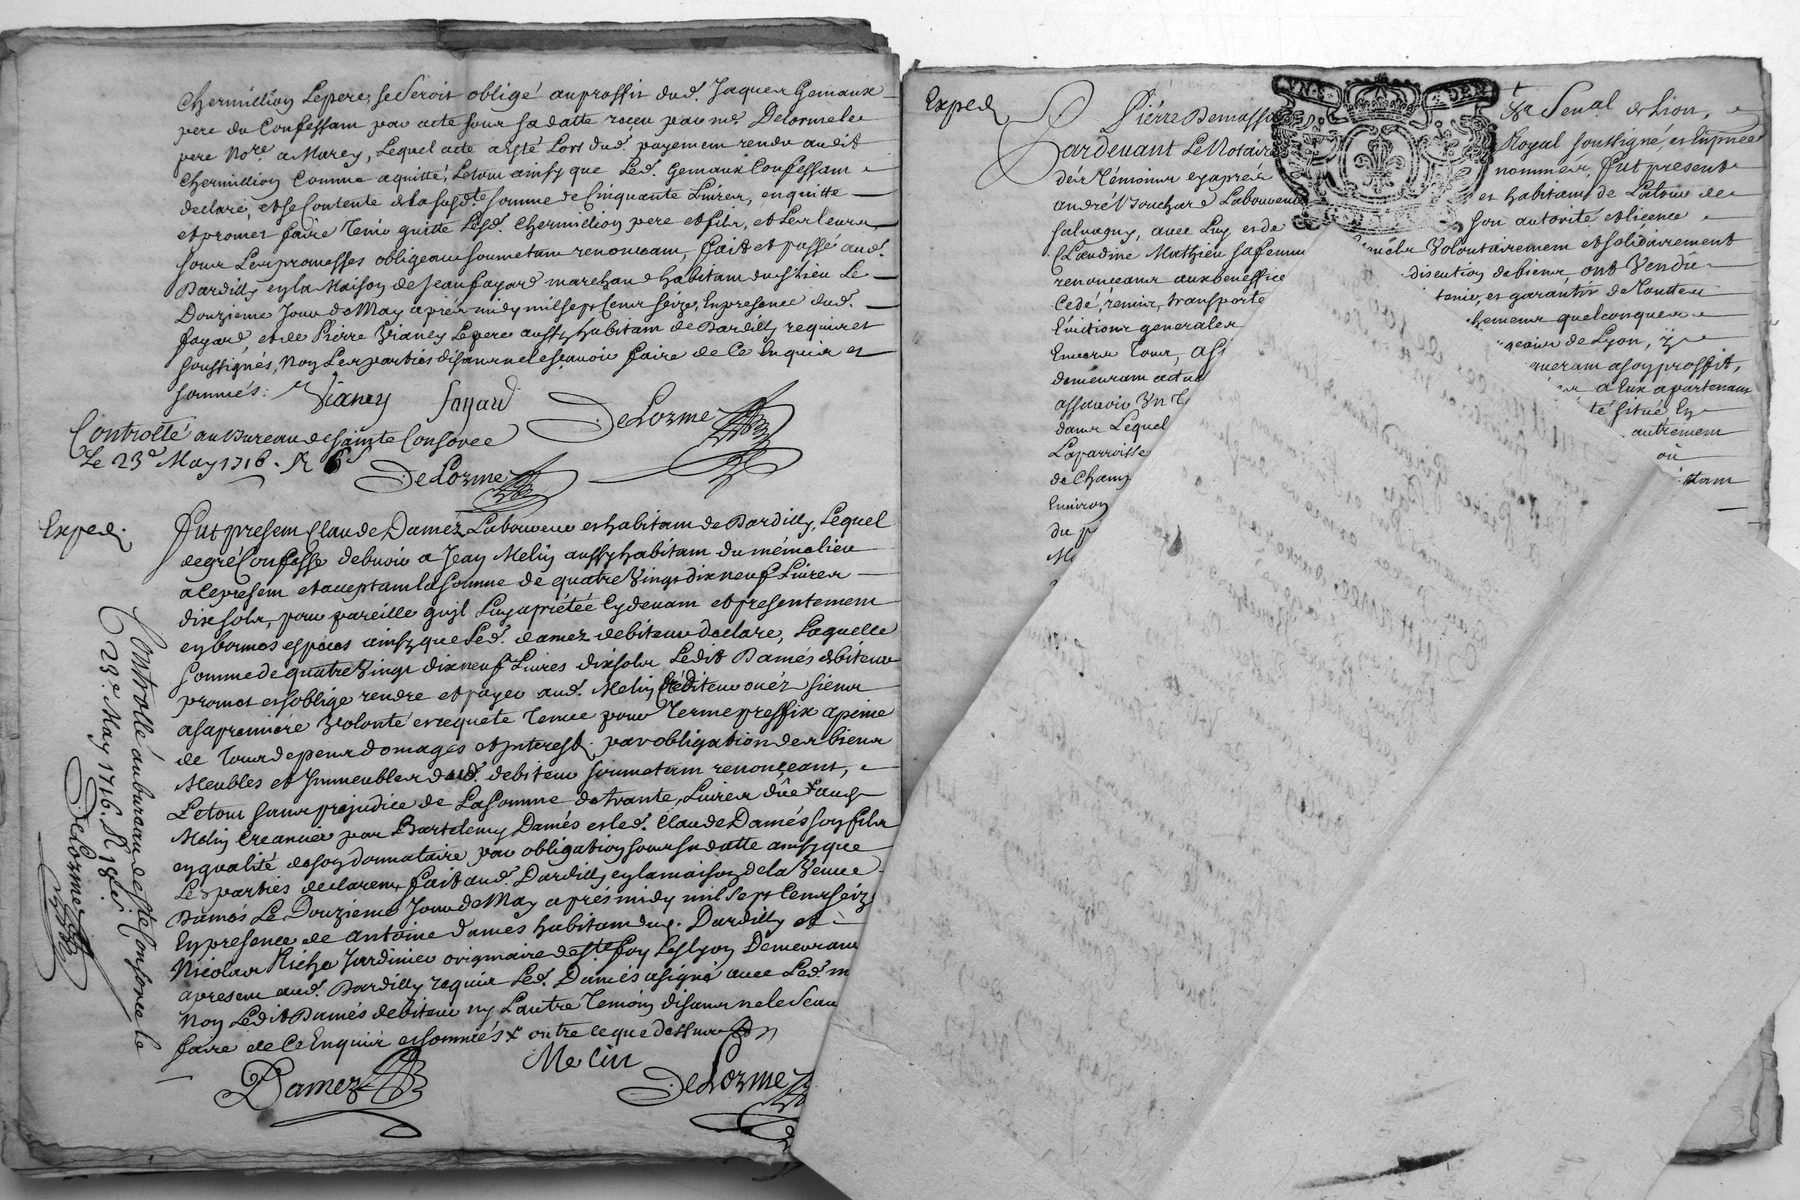 Chermillion Lepere, se seroit obligé au proffit dud. Jaques Gemaux
pere du Confessant par acte sous sa datte receu par me Delorme le
pere Nore. a Marcy, Lequel acte a esté Lors dud. payement rendu audit
Chermillion Comme aquitté, Letout ainsy que Led. Gemaux Confessant
declare, et se Contente de la susdte somme de Cinquante Livres, en quitte
et promet faire tenir quitte Lesd. Chermillion pere et fils, et Les leurs
sous Les promesses obligeant soumetant renonceant, fait et passé aud.
Dardilly en la Maison de Jean fayard marchand habitant dud Lieu Le
Douzieme Jour de May aprés midy mil sept Cens seize, En presence dud.
fayard, et de Pierre Vianey Lepere aussy habitant de Dardilly requis et
soussignés, Non Les parties disant ne le sçavoir faire de Ce Enquis et
sommés:
Vianey fayard DeLorme
Controllé au Bureau de sainte Consorce
Le 23e May 1716. R 6s
DeLorme
Exped.
Fut present Claude Damez Laboureur et habitant de Dardilly, Lequel
de gré Confesse debvoir a Jean Melin aussy habitant du même lieu
a Ce present et acceptant la somme de quatre Vingt dix neuf Livres
dix sols, pour pareille qu'il Luy a prétée Cy devant et presentement
en bonnes especes ainsy que Led. damez debiteur declare, Laquelle
somme de quatre Vingt dix neuf Livres dix sols Ledit Damés debiteur
promet et s'oblige rendre et payer aud. Melin Créditeur ou és siens
a sa premiere Volonté et requete tenue pour terme preffix a peine
de tous depens domages et Interest par obligation des biens
Meubles et Immeubles dud. debiteur soumetant renonçeant,
Letout sans prejudice de La somme de trante Livres dûe x aud
Melin Creancier par Bartelemy Damés et led. Claude Damés son fils
en qualité de son donnataire par obligation sous sa datte ainsy que
Les parties declarent fait aud. Dardilly en la maison de la Veuve
Damés Le Douzieme Jour de May aprés midy mil sept Cens seize
En presence de Antoine Damés habitant dud. Dardilly et
Nicolas Riche Jardinier originaire de Ste foy Les Lyon Demeurant
a present aud. Dardilly requis Led. Damés a signé avec Led. m
Non Ledit Damés debiteur ny L'autre témoin disant ne le sçau
faire de Ce Enquis et sommés x outre ce que dessus
Damez Melin DeLorme
Controllé au bureau de ste Consorce le
23e. May 1716. R
DeLorme
Exped
Pardevant Le Notaire Royal soussigné, et En présence
des témoins cy aprés nommés, fut present
andré Bouchard Laboureur et habitant de Latour de
salvagny, avec Luy et de son autorité et licence
Claudine Mathieu sa femme Volontairement et solidairement
renonceant aux benéffice discution de biens ont Vendû
Cedé, remis, transporté tenir, et garantir de toutte
Evictions generales chemens quelconques
Envers tous, a de Lyon, y
demeurant actu querant a son proffit,
assavoir Un a Eux apartenant
dans Lequel té situé En
Laparroisse autrement
de Champ ou
Environ
du p